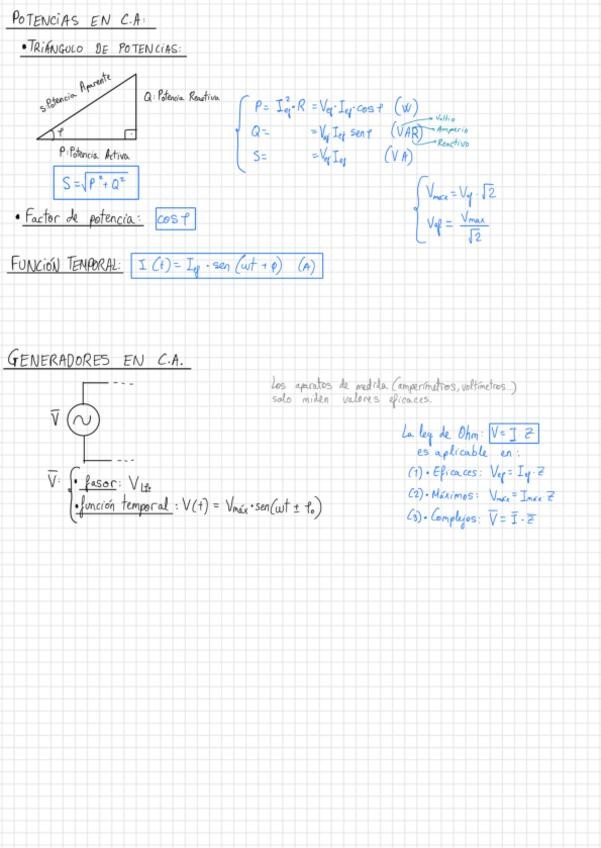 POTENCIAS EN C.A:
• TRIÁNGULO DE POTENCIAS:
S:Potencia Aparente
Q: Potencia Reactiva
φ
P: Potencia Activa
S=√P²+Q²
P= I²ef·R = Vef·Ief·cosφ (W)
Q= =Vef Ief senφ (VAR)
Voltio
Amperio
Reactivo
S= =Vef Ief (VA)
Vmax = Vef·√2
Vef = Vmax/√2
• Factor de potencia: cosφ
FUNCIÓN TEMPORAL: I(t) = Ief·sen(ωt+φ) (A)
GENERADORES EN C.A.
Los aparatos de medida (amperímetros, voltímetros..)
solo miden valores eficaces.
V̅
La ley de Ohm: V= I Z
es aplicable en:
(1)• Eficaces: Vef = Ief·Z
(2)• Máximos: Vmáx = Imáx Z
(3)• Complejos: V̅ = I̅·Z̅
V̅: • fasor: V
• función temporal: V(t) = Vmáx·sen(ωt ± φ₀)